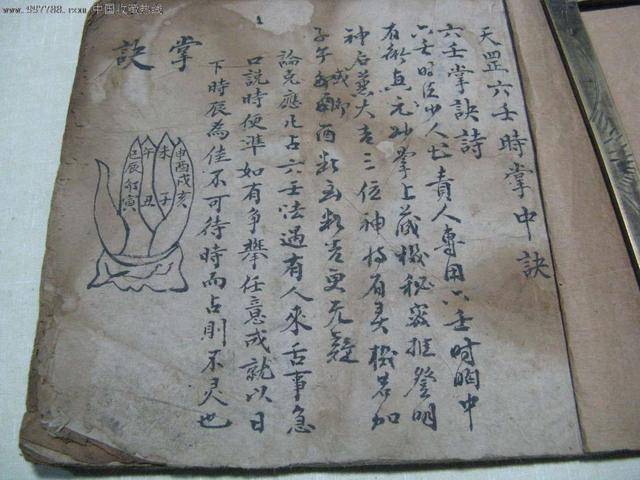 天罡六壬時掌中訣
六壬掌訣詩
六壬時法少人
責人專用六壬时胸中
有術真元妙掌上藏機秘密推登明
神后蒸大吉三位神持有灵機若加
子午
卯
酉
断吉更无疑
論克應凡占六壬法遇有人來舌事急
口説時便準如有争舉任意成就以日
下時辰為佳不可待時而占則不灵也
掌訣
申酉戌亥
未子
午丑
巳辰卯寅
www.997788.com 中国收藏热线